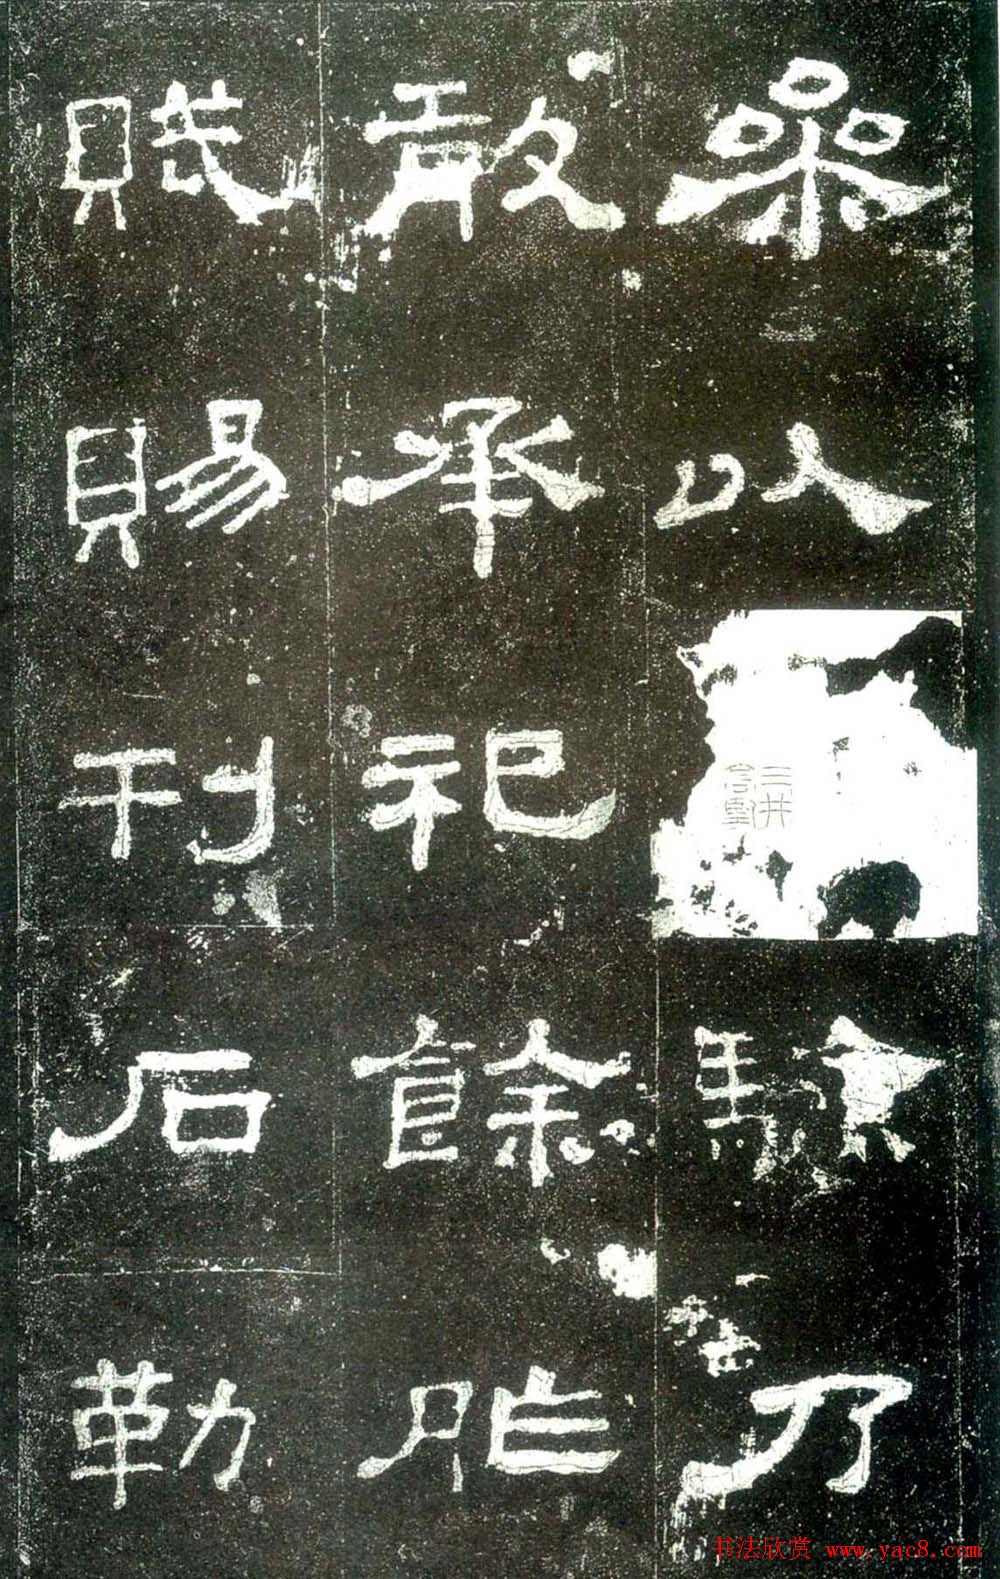 參以
驗乃
敢承祀餘胙
賦賜刊石勒
三井
书法欣赏 www.yac8.com